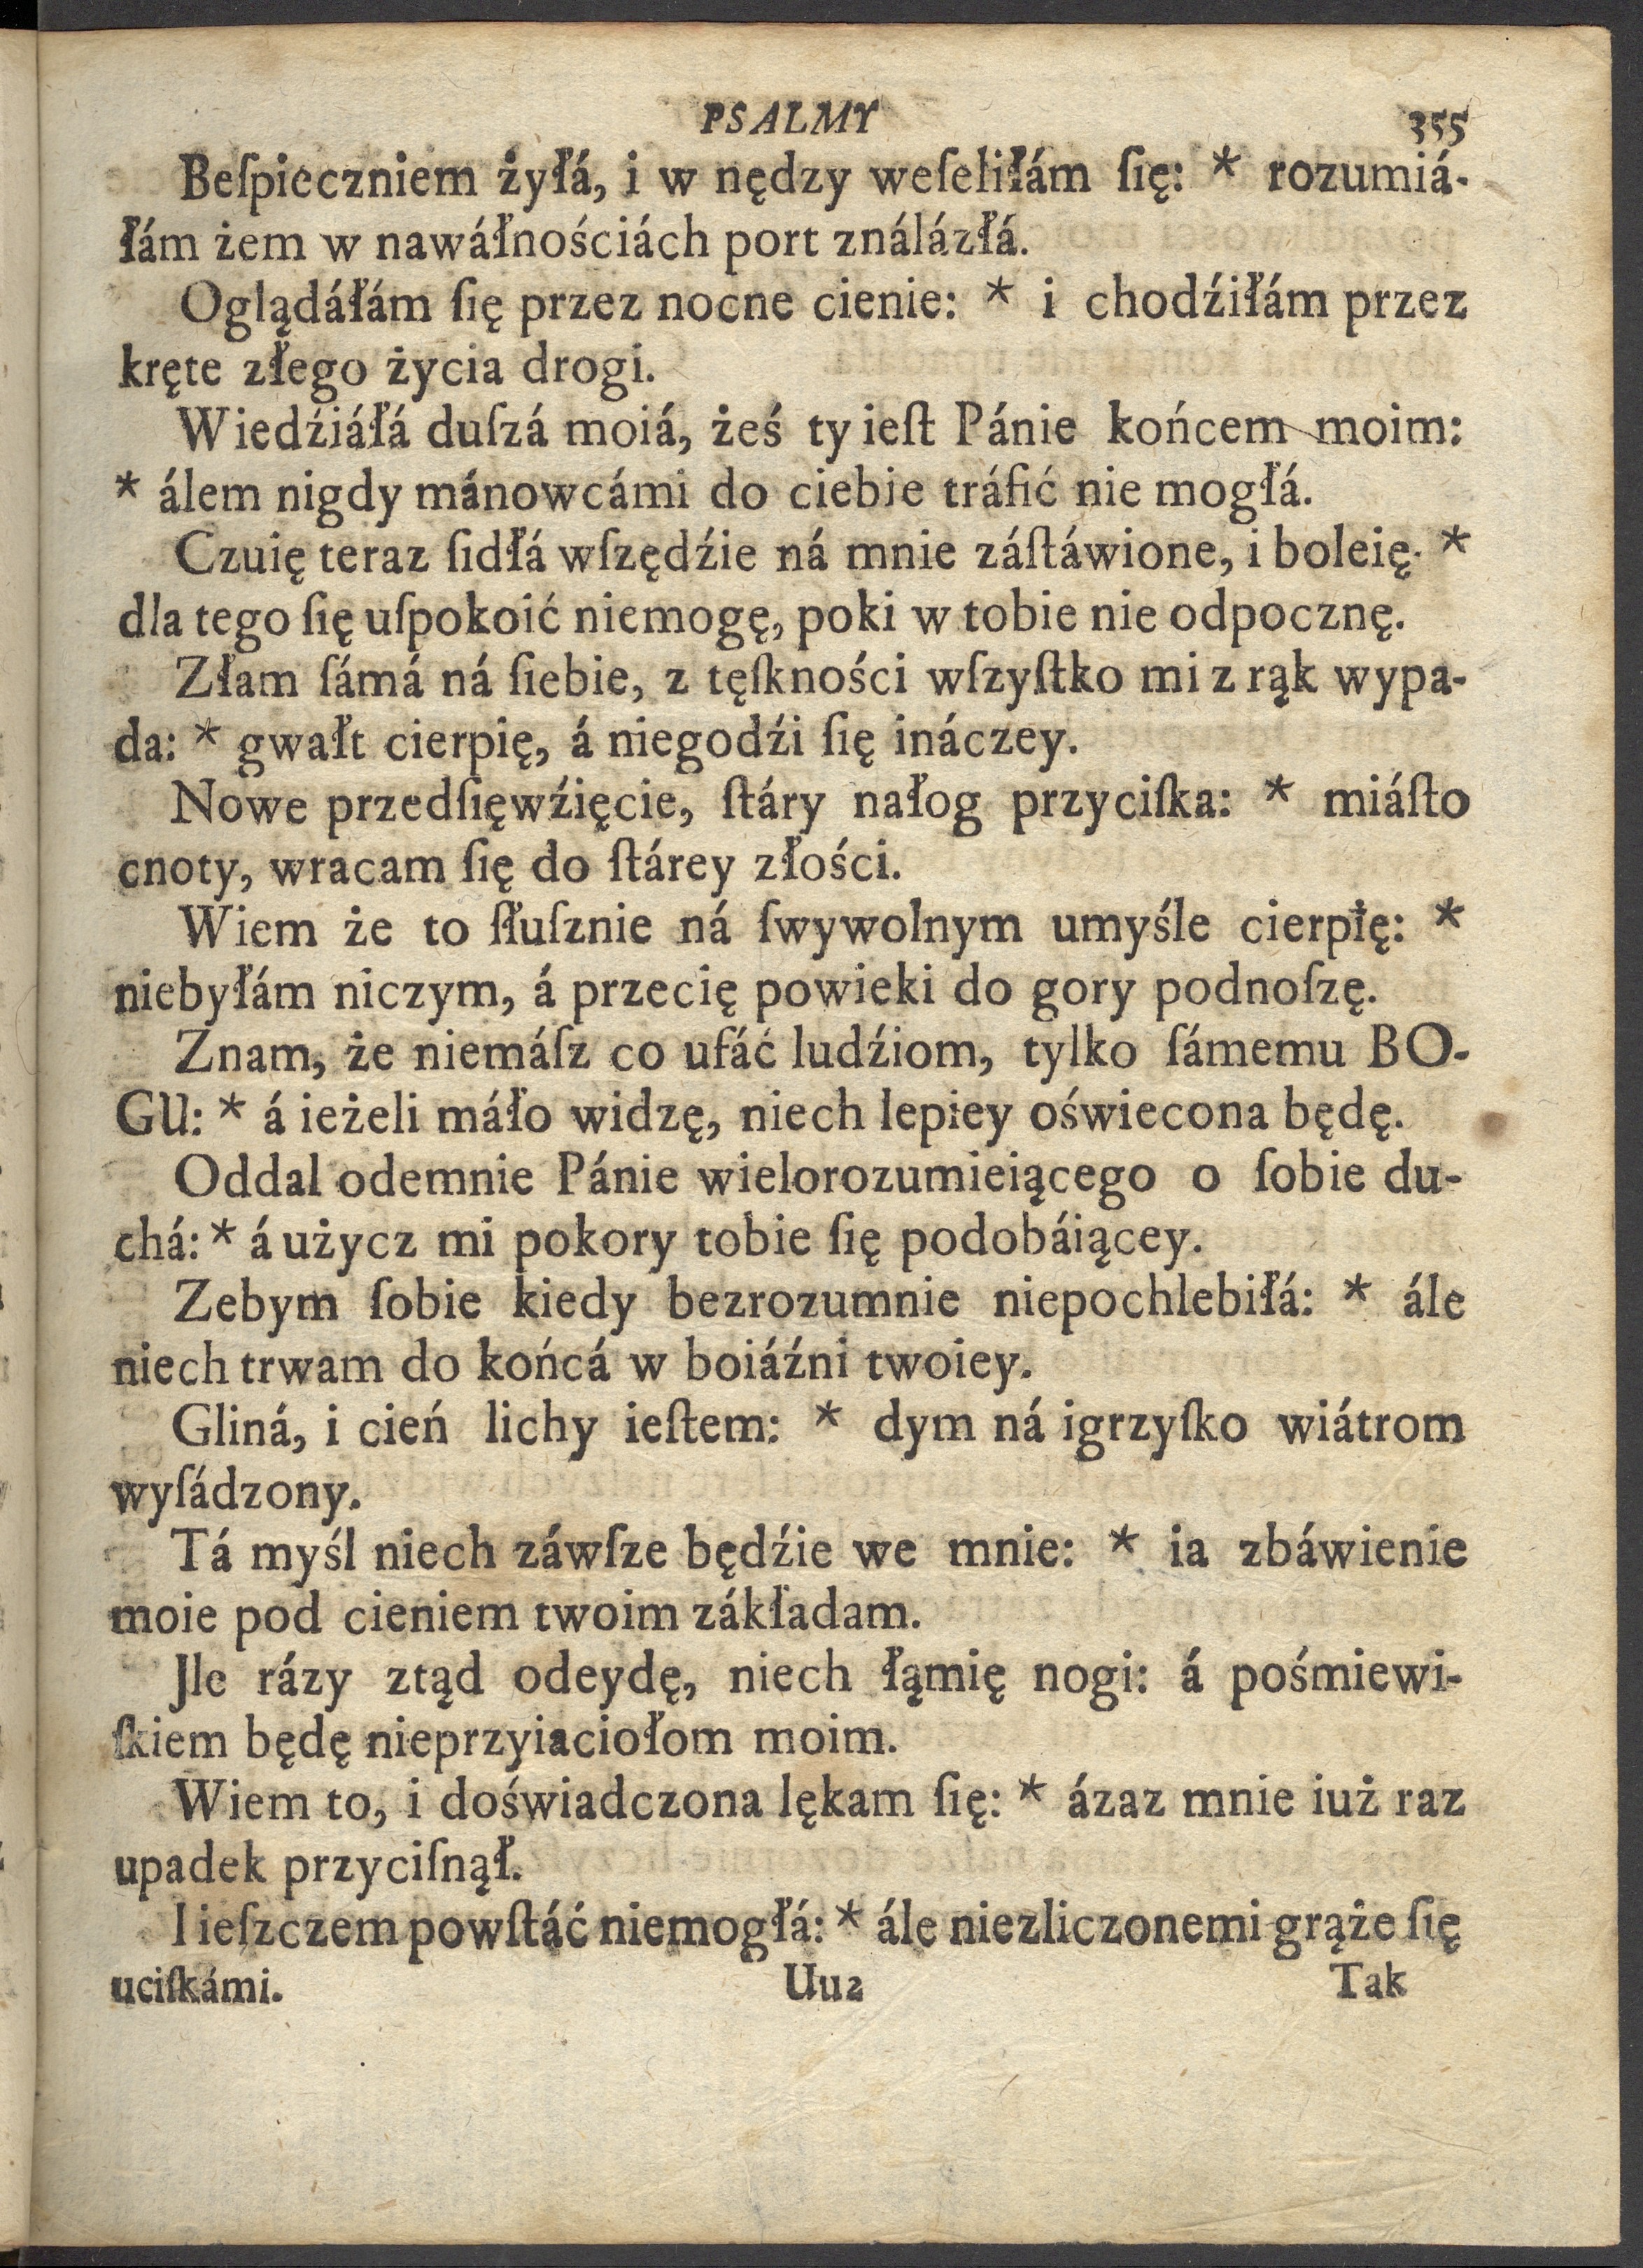 PSALMY 355
Beſpieczniem żyłá, i w nędzy weſeliłám ſię: * rozumiá-
łám żem w nawáłnościách port ználázłá.
Oglądáłám ſię przez nocne cienie: * i chodźiłám przez
kręte złego życia drogi.
Wiedźiáłá duſzá moiá, żeś ty ieſt Pánie końcem moim:
* álem nigdy mánowcámi do ciebie tráfić nie mogłá.
Czuię teraz ſidłá wſzędźie ná mnie záſtáwione, i boleię. *
dla tego ſię uſpokoić niemogę, poki w tobie nie odpocznę.
Złam ſámá ná ſiebie, z tęſkności wſzyſtko mi z rąk wypa-
da: * gwałt cierpię, á niegodźi ſię ináczey.
Nowe przedſięwźięcie, ſtáry nałog przyciſka: * miáſto
cnoty, wracam ſię do ſtárey złości.
Wiem że to ſłuſznie ná ſwywolnym umyśle cierpię: *
niebyłám niczym, á przecię powieki do gory podnoſzę.
Znam, że niemáſz co ufáć ludźiom, tylko ſámemu BO-
GU: * á ieżeli máło widzę, niech lepiey oświecona będę.
Oddal odemnie Pánie wielorozumieiącego o ſobie du-
chá: * á użycz mi pokory tobie ſię podobáiącey.
Zebym ſobie kiedy bezrozumnie niepochlebiłá: * ále
niech trwam do końcá w boiáźni twoiey.
Gliná, i cień lichy ieſtem: * dym ná igrzyſko wiátrom
wyſádzony.
Tá myśl niech záwſze będźie we mnie: * ia zbáwienie
moie pod cieniem twoim zákładam.
Jle rázy ztąd odeydę, niech łąmię nogi: á pośmiewi-
ſkiem będę nieprzyiaciołom moim.
Wiem to, i doświadczona lękam ſię: * ázaz mnie iuż raz
upadek przyciſnął.
I ieſzczem powſtáć niemogłá: * ále niezliczonemi grąże ſię
uciſkámi. Uu2 Tak